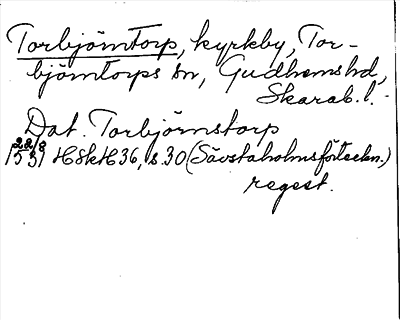 Torbjörntorp, kyrkby, Tor-
björntorps sn, Gudhems hd,
Skarab. l.
Dat. Torbjörnstorp
22/8 1531 HSkH 36, s. 30 (Sävstaholmsförteckn.)
regest.